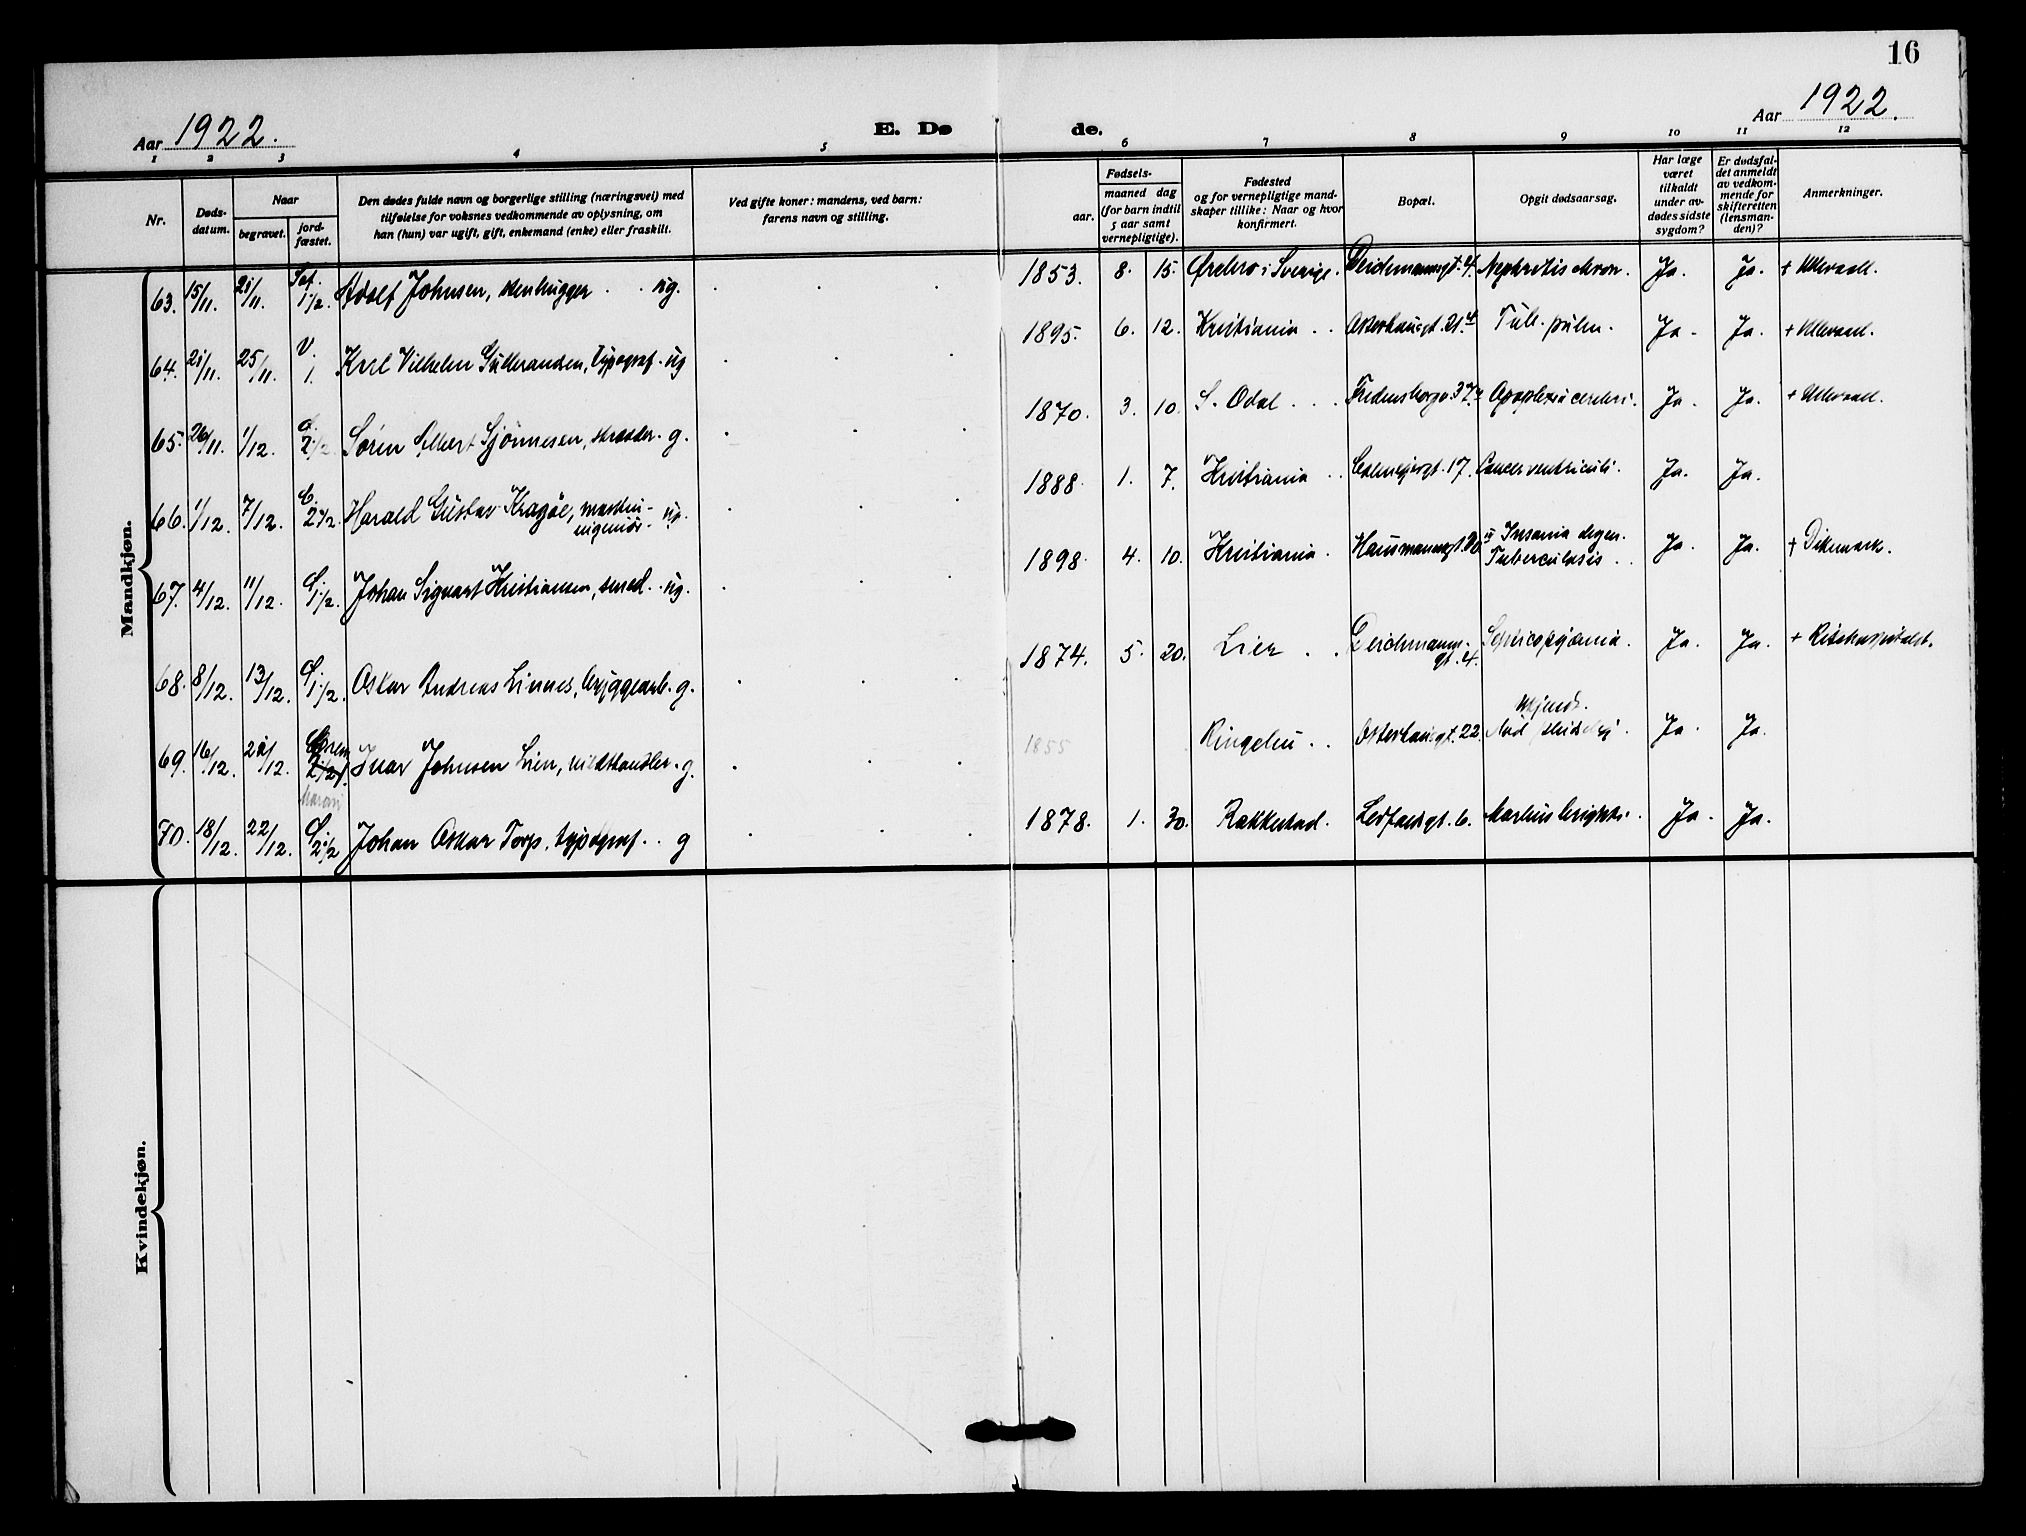 16
Aar 1922.
E. Dø de.
Aar 1922.
1 2 3 4 5 6 7 8 9 10 11 12
Nr.
Døds-
datum.
Naar
begravet.
jord-
fæstet.
Den dødes fulde navn og borgerlige stilling (næringsvei) med
tilføielse for voksnes vedkommende av oplysning, om
han (hun) var ugift, gift, enkemand (enke) eller fraskilt.
Ved gifte koner: mandens, ved barn:
farens navn og stilling.
Fødsels-
aar.
maaned dag
(for barn indtil
5 aar samt
vernepligtige).
Fødested
og for vernepligtige mand-
skaper tillike: Naar og hvor
konfirmert.
Bopæl.
Opgit dødsaarsag.
Har læge
været
tilkaldt
under av-
dødes sidste
sygdom?
Er dødsfal-
det anmeldt
av vedkom-
mende for
skifteretten
(lensman-
den)?
Anmerkninger.
Mandkjøn.
63. 15/11. 21/11. 1 1/2. Adolf Johnsen, stenhugger . . ug. 1853. 8. 15. Ørebro i Sverige. Deichmannsgt. 4. Nephritis chron. Ja. Ja. + Ullevaal.
64. 21/11. 25/11. V. 1. Karl Vilhelm Gulbrandsen, typograf. ug 1895. 6. 12. Kristiania . . Osterhausgt. 21. Tub. pulm. Ja. Ja. + Ullevaal.
65. 26/11. 1/12. 2 1/2. Søren Albert Sjönnesen, skrædder. g. 1870. 3. 10. S. Odal . . . Fredensborgv. 37 Apoplexia cerebri. Ja. Ja. + Ullevaal.
66. 1/12. 7/12. C. 2 1/2. Harald Gustav Kragøe, maskin-
ingeniør. ug. 1888. 1. 7. Kristiania . . 17. Cancer ventriculi. Ja. Ja.
67. 4/12. 11/12. 1 1/2. Johan Sigvart Kristiansen, smed. . ug. 1898. 4. 10. Kristiania. Hausmannsgt. Insania degen.
Tuberculosis . . Ja. Ja. + Dikemark.
68. 8/12. 13/12. 1 1/2. Oskar Andreas Linnes, bryggearb. g. 1874. 5. 20. Lier . . Deichmanns-
gt. 4. Septicopyæmia. Ja. Ja. + Rikshospitalet.
69. 16/12. 21/12. Krem. Ivar Johnsen Lien, vedhandler. g. 1855 Ringebu . . Osterhausgt. 22. Ja. Ja.
70. 18/12. 22/12. 2 1/2 Johan Oskar Torp, typograf. . g 1878. 1. 30. Rakkestad. 6. Morbus brightii. Ja. Ja.
Kvindekjøn.